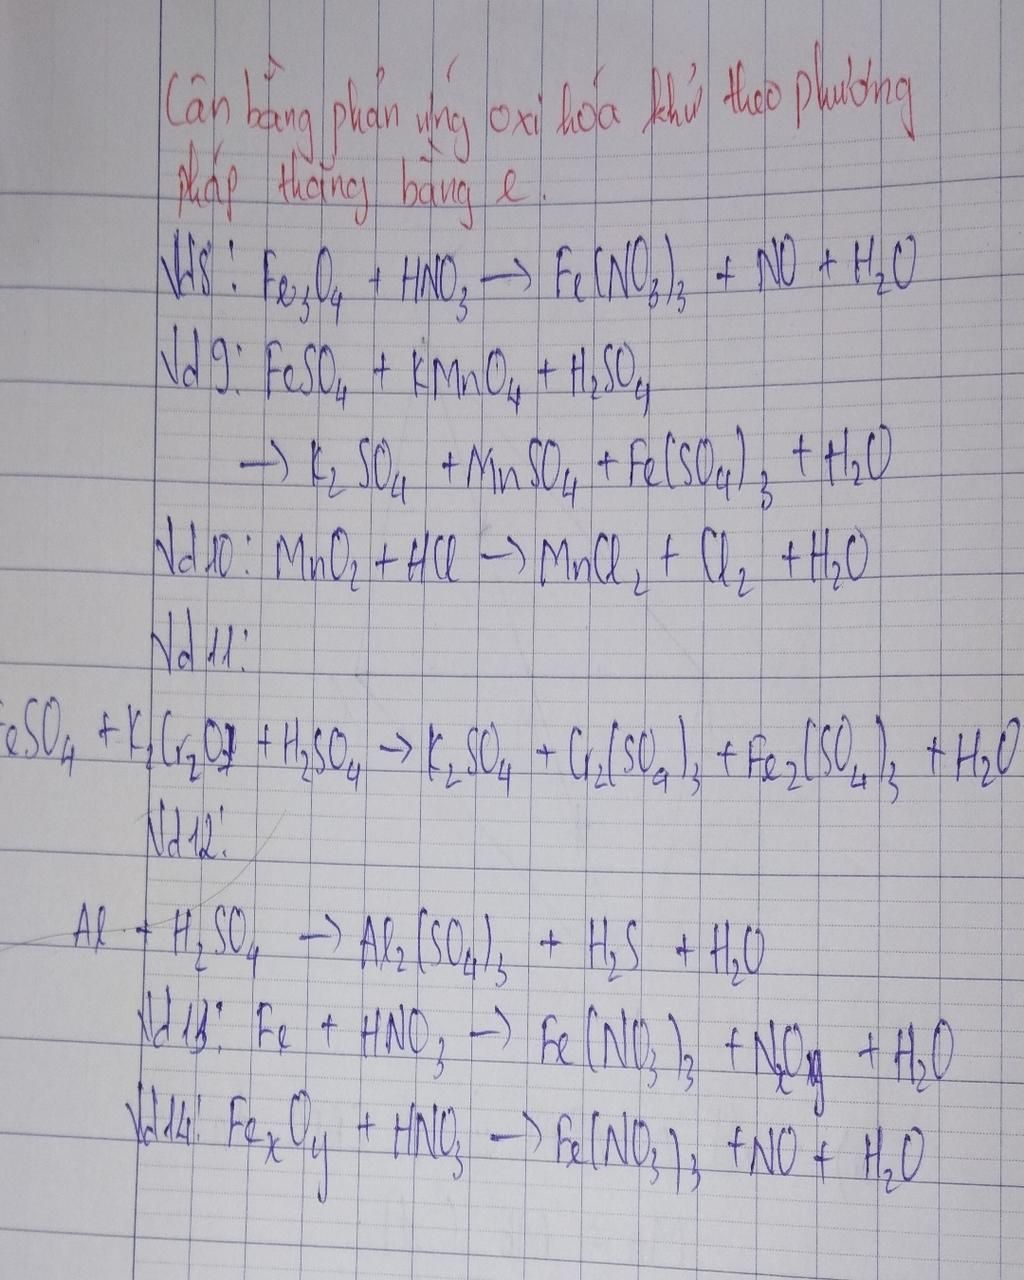 Cân bằng phản ứng oxi hóa khử theo phương
pháp thăng bằng e.
Vd8: Fe₃O₄ + HNO₃ → Fe(NO₃)₃ + NO + H₂O
Vd9: FeSO₄ + KMnO₄ + H₂SO₄
→ K₂SO₄ + MnSO₄ + Fe(SO₄)₃ + H₂O
Vd10: MnO₂ + HCl → MnCl₂ + Cl₂ + H₂O
Vd11:
FeSO₄ + K₂Cr₂O₇ + H₂SO₄ → K₂SO₄ + Cr₂(SO₄)₃ + Fe₂(SO₄)₃ + H₂O
Vd12:
Al + H₂SO₄ → Al₂(SO₄)₃ + H₂S + H₂O
Vd13: Fe + HNO₃ → Fe(NO₃)₃ + NₓOy + H₂O
Vd14: FeₓOy + HNO₃ → Fe(NO₃)₃ + NO + H₂O